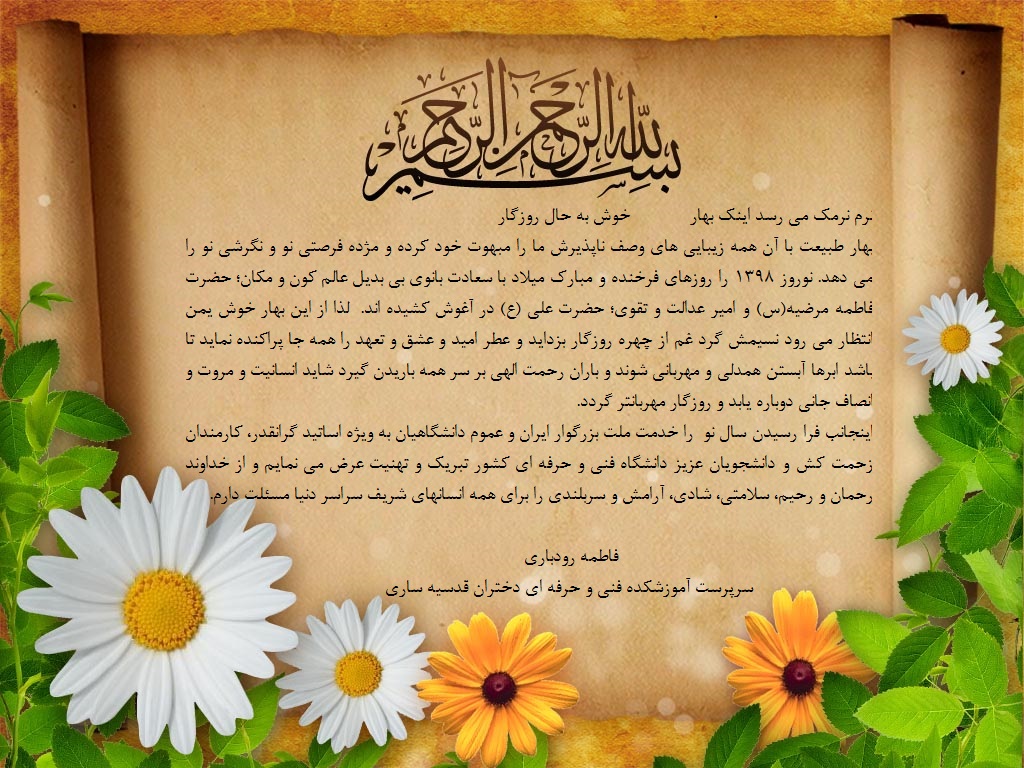 بسم الله الرحمن الرحیم
نرم نرمک می رسد اینک بهار خوش به حال روزگار
بهار طبیعت با آن همه زیبایی های وصف ناپذیرش ما را مبهوت خود کرده و مژده فرصتی نو و نگرشی نو را
می دهد. نوروز ۱۳۹۸ را روزهای فرخنده و مبارک میلاد با سعادت بانوی بی بدیل عالم کون و مکان؛ حضرت
فاطمه مرضیه(س) و امیر عدالت و تقوی؛ حضرت علی (ع) در آغوش کشیده اند. لذا از این بهار خوش یمن
انتظار می رود نسیمش گرد غم از چهره روزگار بزداید و عطر امید و عشق و تعهد را همه جا پراکنده نماید تا
باشد ابرها آبستن همدلی و مهربانی شوند و باران رحمت الهی بر سر همه باریدن گیرد شاید انسانیت و مروت و
انصاف جانی دوباره یابد و روزگار مهربانتر گردد.
اینجانب فرا رسیدن سال نو را خدمت ملت بزرگوار ایران و عموم دانشگاهیان به ویژه اساتید گرانقدر، کارمندان
زحمت کش و دانشجویان عزیز دانشگاه فنی و حرفه ای کشور تبریک و تهنیت عرض می نمایم و از خداوند
رحمان و رحیم، سلامتی، شادی، آرامش و سربلندی را برای همه انسانهای شریف سراسر دنیا مسئلت دارم.
فاطمه رودباری
سرپرست آموزشکده فنی و حرفه ای دختران قدسیه ساری